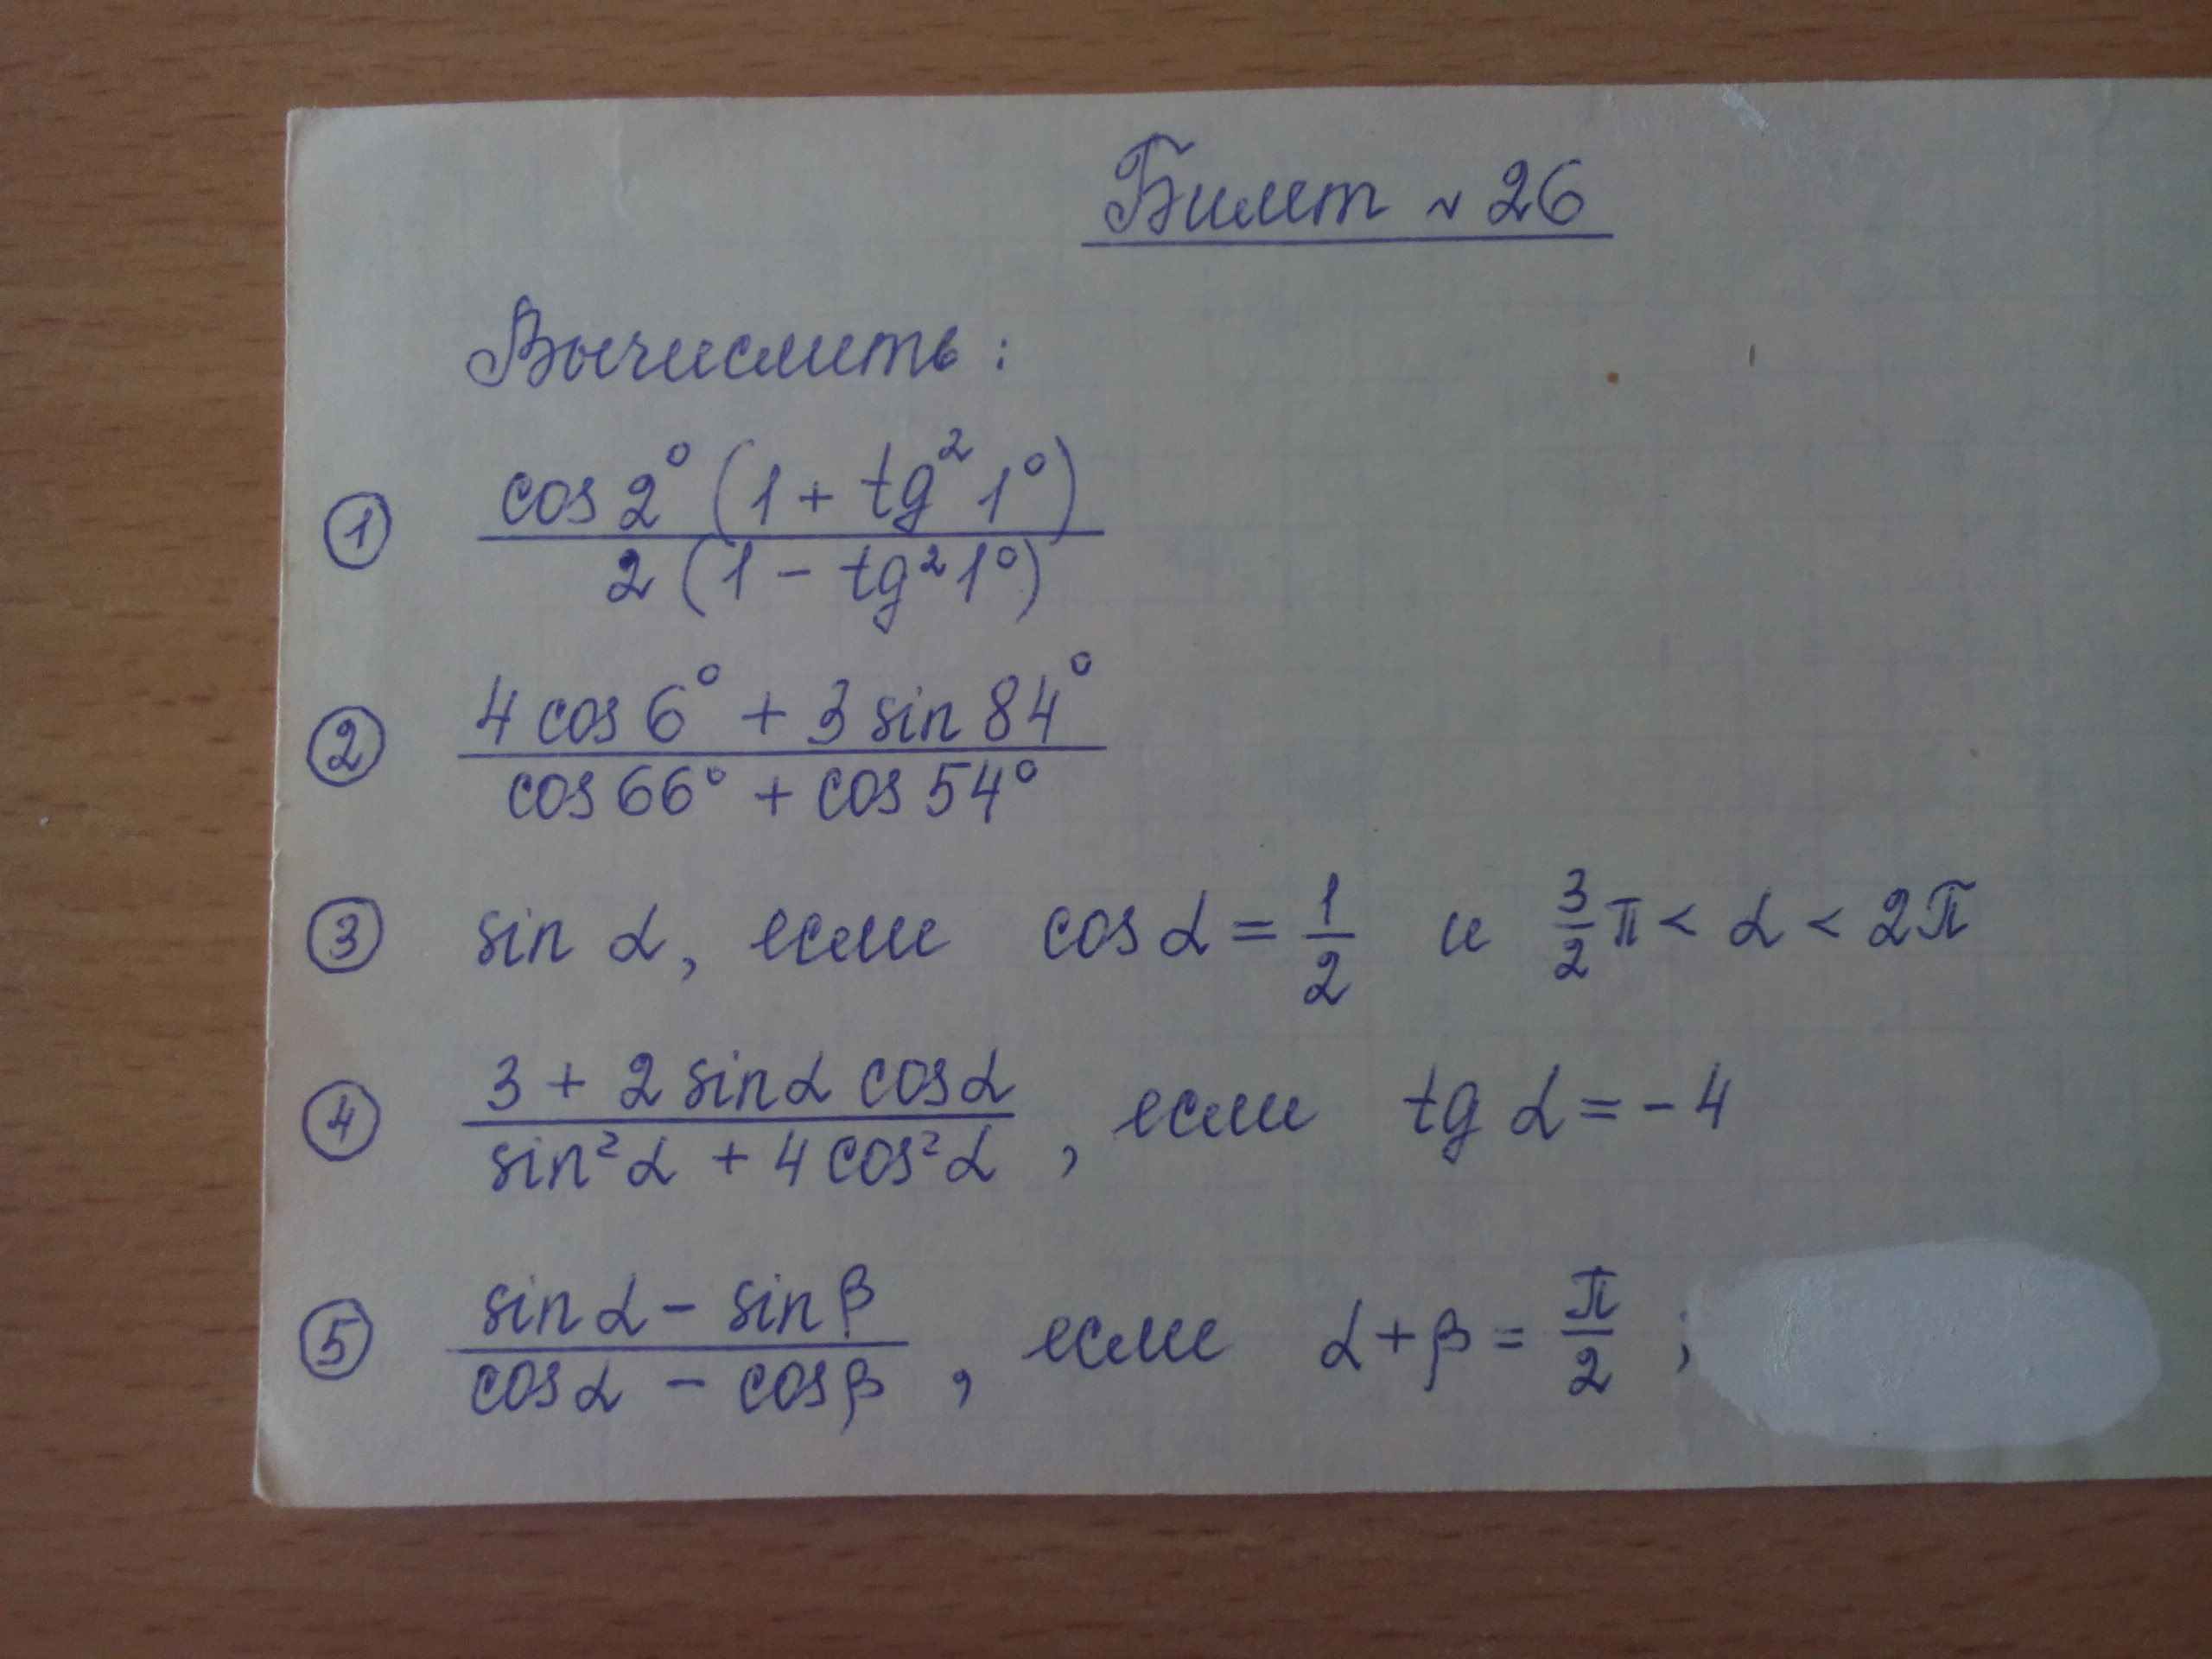 Билет N 26
Вычислить:
① cos 2° (1 + tg² 1°) / 2 (1 - tg² 1°)
② 4 cos 6° + 3 sin 84° / cos 66° + cos 54°
③ sin α, если cos α = 1/2 и 3/2 π < α < 2π
④ 3 + 2 sin α cos α / sin² α + 4 cos² α , если tg α = - 4
⑤ sin α - sin β / cos α - cos β , если α + β = π/2 ;